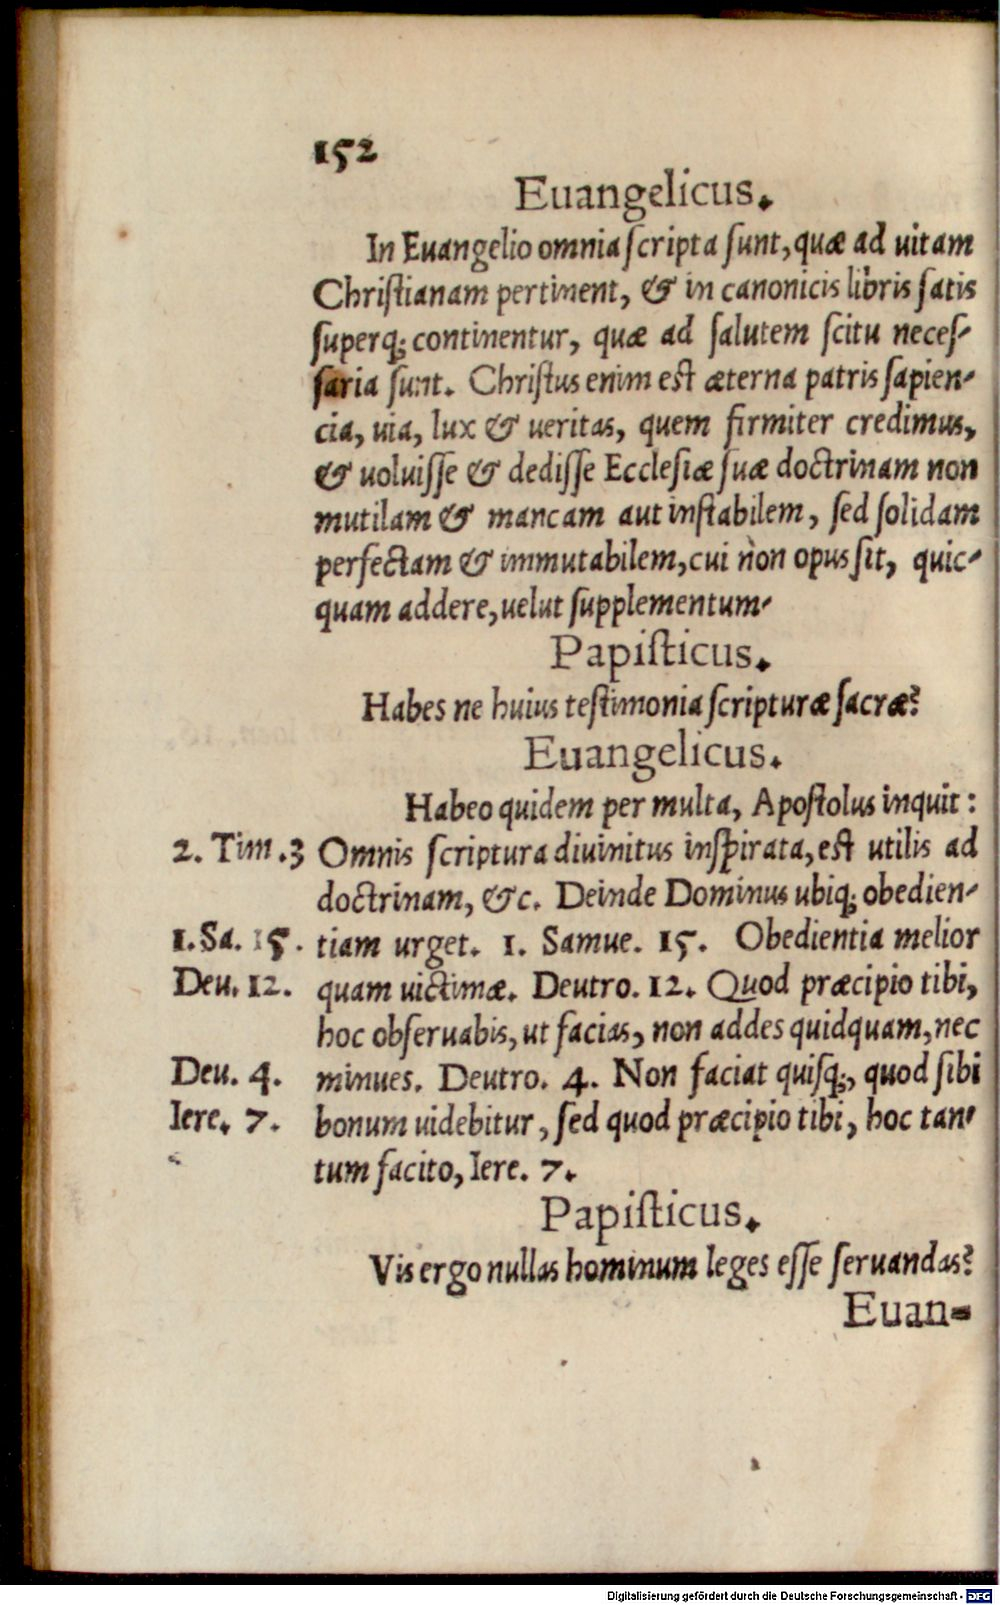 152
Euangelicus.
In Euangelio omnia ſcripta ſunt, quæ ad uitam
Chriſtianam pertinent, & in canonicis libris ſatis
ſuperq; continentur, quæ ad ſalutem ſcitu neceſ-
ſaria ſunt. Chriſtus enim est æterna patris ſapien-
cia, uia, lux & ueritas, quem firmiter credimus,
& uoluiſſe & dediſſe Eccleſiæ ſuæ doctrinam non
mutilam & mancam aut inſtabilem, ſed ſolidam
perfectam & immutabilem, cui nòn opus ſit, quic-
quam addere, uelut ſupplementum.
Papiſticus.
Habes ne huius teſtimonia ſcripturæ ſacræ?
Euangelicus.
Habeo quidem per multa, Apoſtolus inquit:
2. Tim. 3 Omnis ſcriptura diuinitus inſpirata, est utilis ad
doctrinam, &c. Deinde Dominus ubiq; obedien-
1. Sa. 15. tiam urget. 1. Samue. 15. Obedientia melior
Deu. 12. quam uictimæ. Deutro. 12. Quod præcipio tibi,
hoc obſeruabis, ut facias, non addes quidquam, nec
Deu. 4. minues. Deutro. 4. Non faciat quiſq;, quod ſibi
Iere. 7. bonum uidebitur, ſed quod præcipio tibi, hoc tan-
tum facito, Iere. 7.
Papiſticus.
Vis ergo nullas hominum leges eſſe ſeruandas?
Euan-
Digitalisierung gefördert durch die Deutsche Forschungsgemeinschaft - DFG